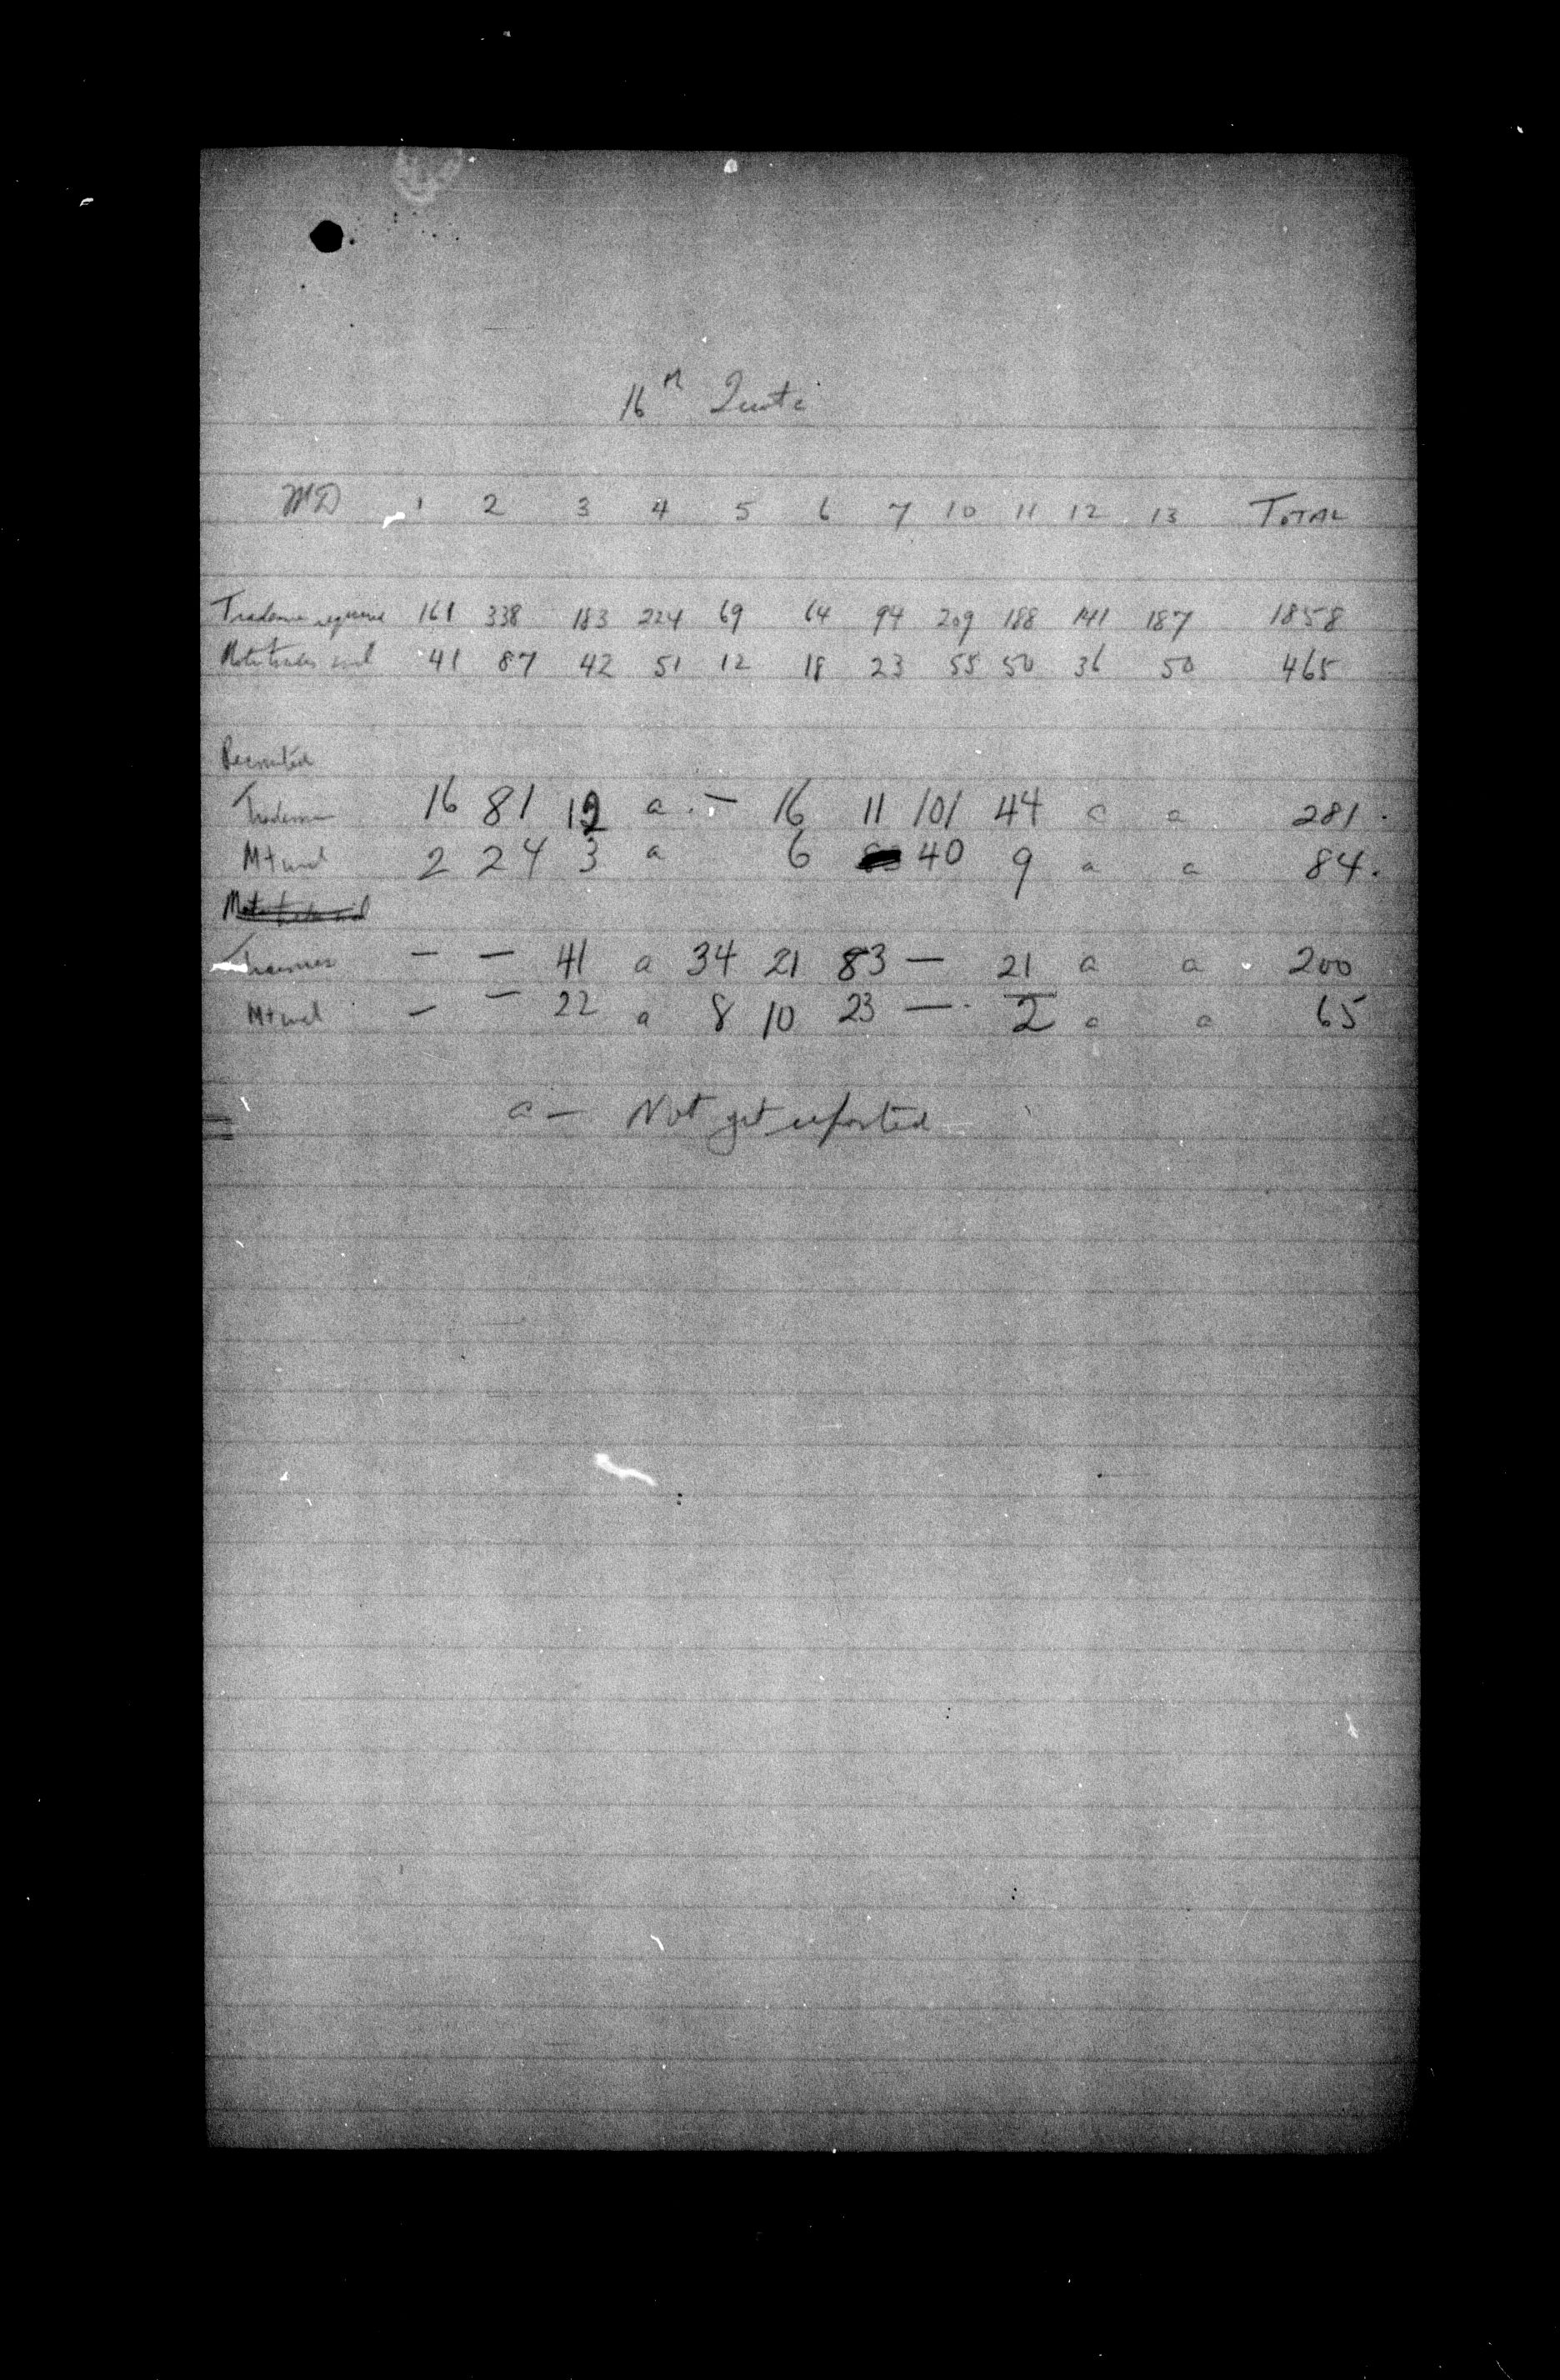 16th Quota
MD 1 2 3 4 5 6 7 10 11 12 13 TOTAL
Tradesmen required 161 338 183 224 69 64 94 209 188 141 187 1858
Motor trades incl 41 87 42 51 12 18 23 55 50 36 50 465
Recruited
Tradesmen 16 81 12 a - 16 11 101 44 a a 281.
Mt incl 2 24 3 a 6 40 9 a a 84.
Trainees - - 41 a 34 21 83 - 21 a a 200
Mt incl - - 22 a 8 10 23 - 2 a a 65
a - Not yet reported